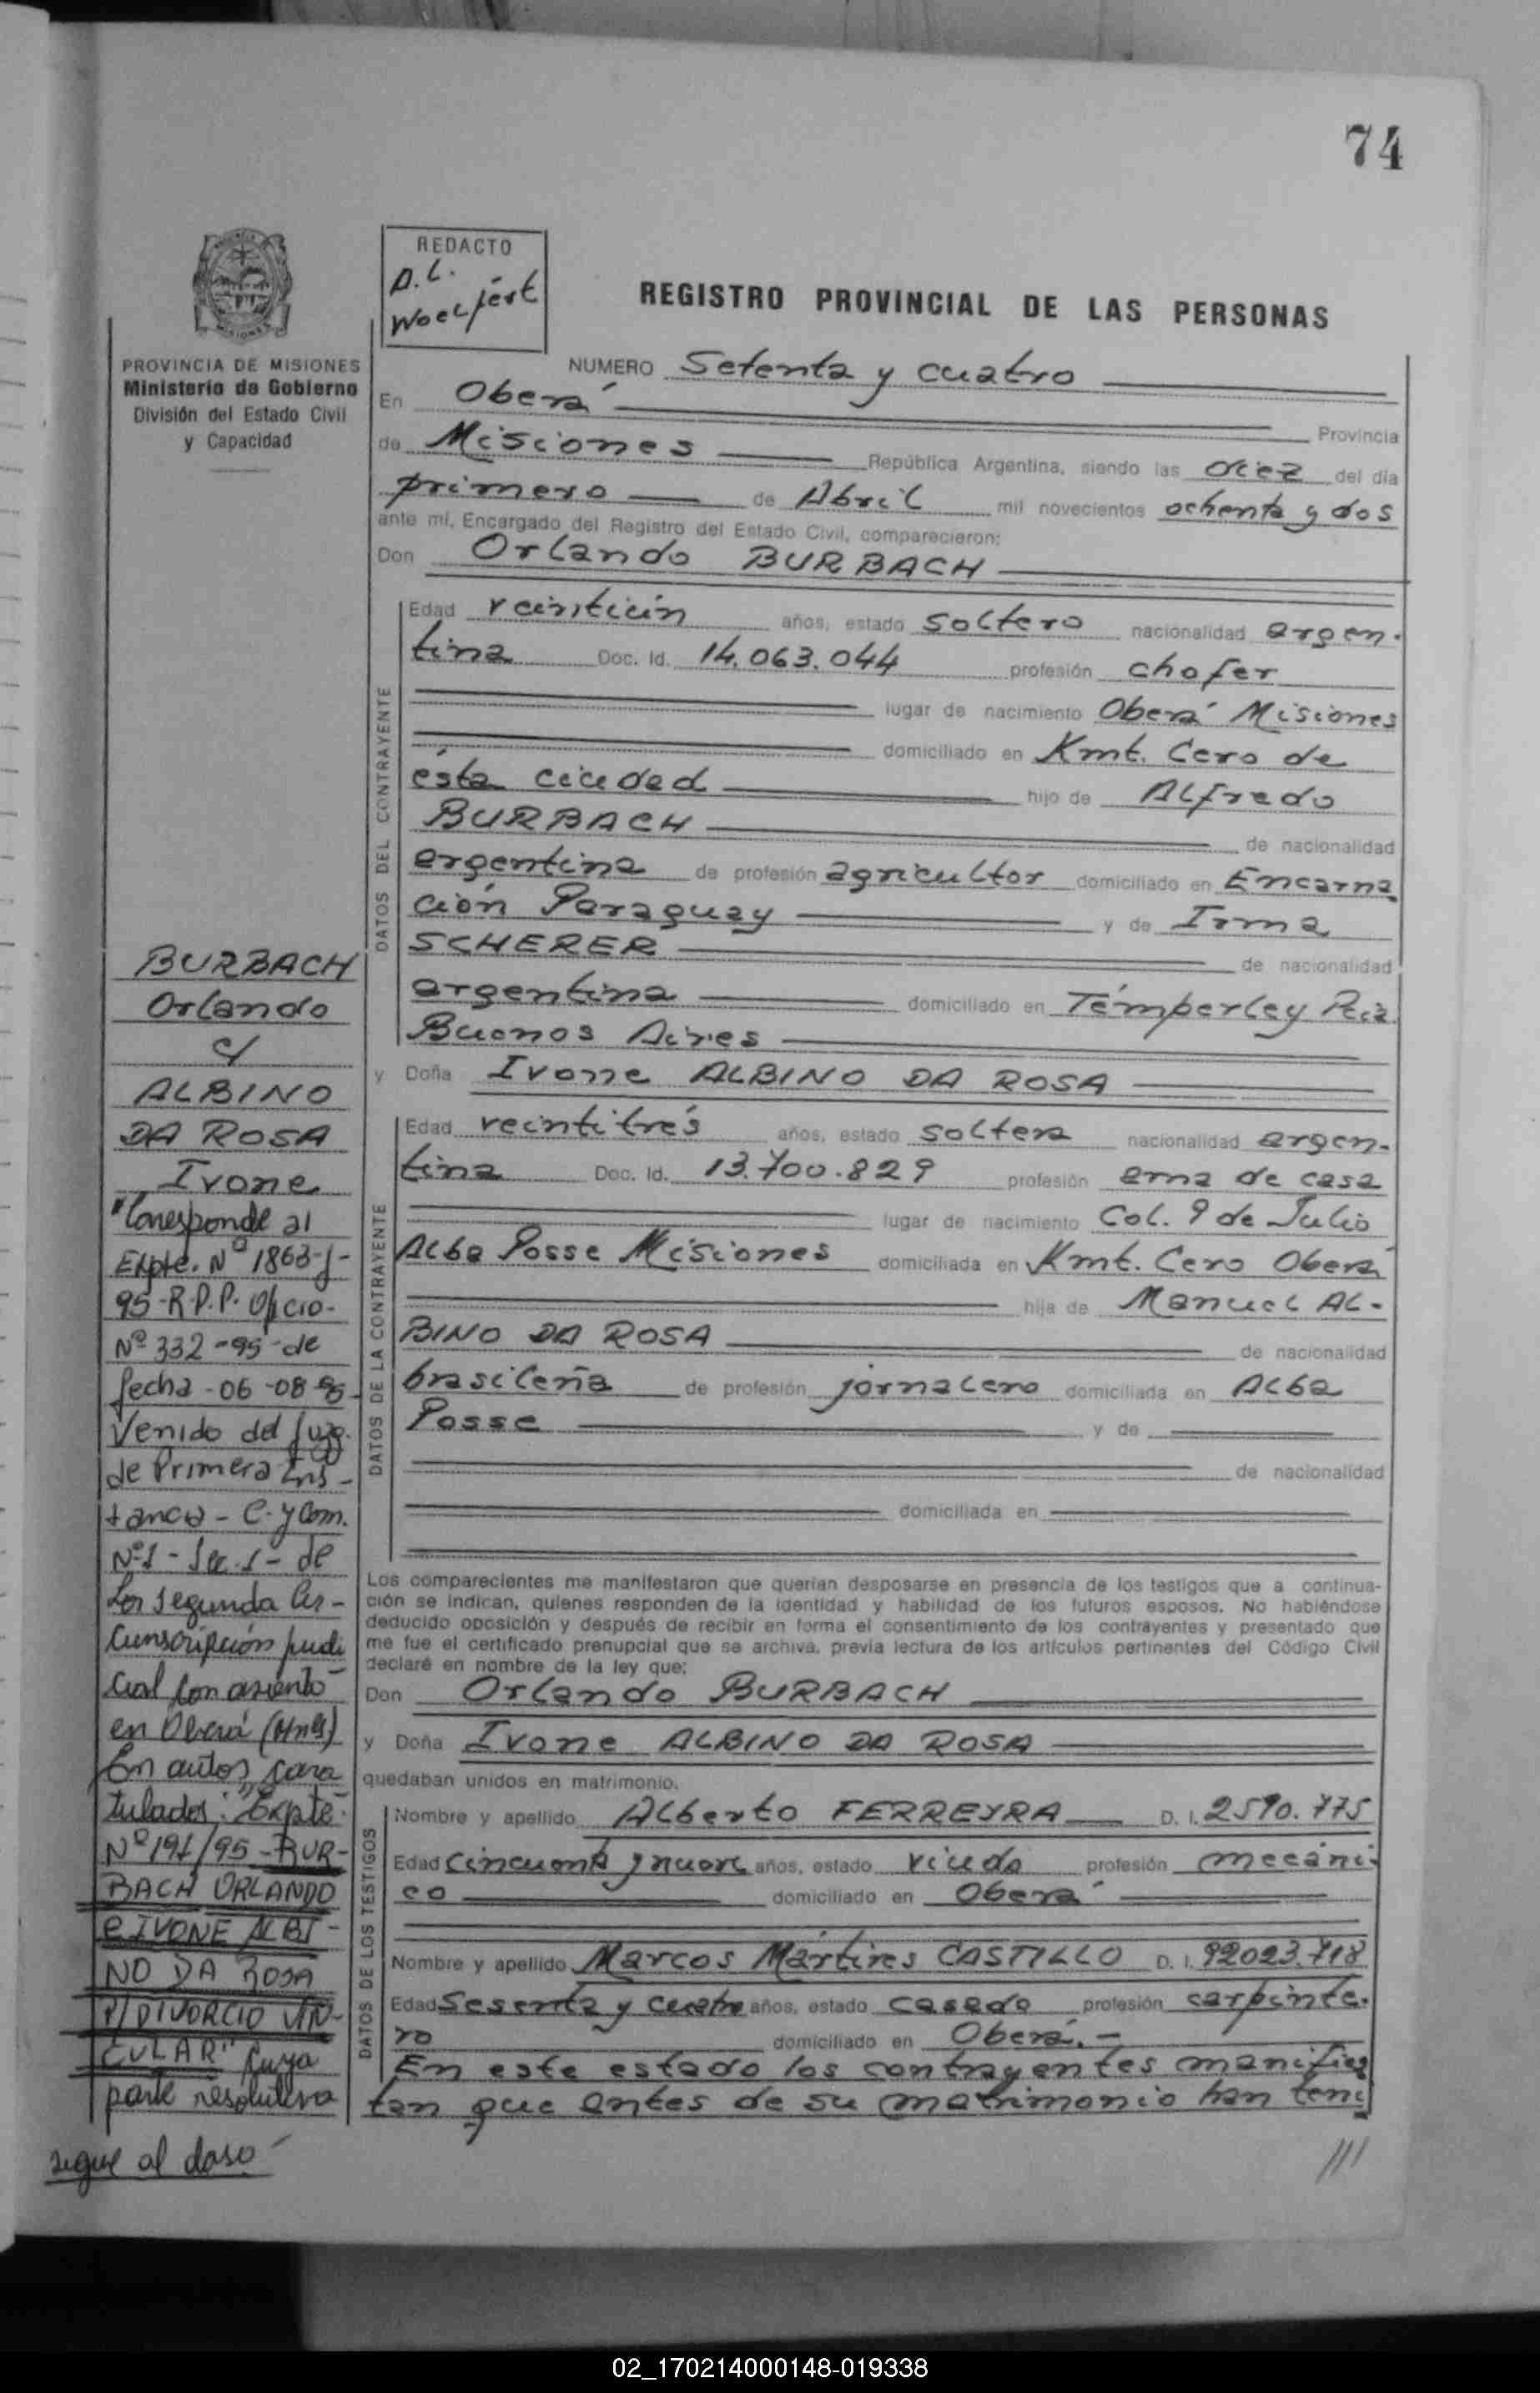 74
REDACTO
A.L.
Woelfert
REGISTRO PROVINCIAL DE LAS PERSONAS
PROVINCIA DE MISIONES
Ministerio de Gobierno
División del Estado Civil
y Capacidad
NUMERO Setenta y cuatro
En Oberá
Provincia
de Misiones República Argentina, siendo las diez del día
primero de Abril mil novecientos ochenta y dos
ante mí, Encargado del Registro del Estado Civil, comparecieron:
Don Orlando BURBACH
DATOS DEL CONTRAYENTE
Edad años, estado soltero nacionalidad argen-
tina Doc. Id. 14.063.044 profesión chofer
lugar de nacimiento Oberá Misiones
domiciliado en Kmt. Cero de
ésta ciudad hijo de Alfredo
BURBACH de nacionalidad
argentina de profesión agricultor domiciliado en Encarna
ción Paraguay y de Irma
SCHERER de nacionalidad
argentina domiciliado en Témperley Pcia.
Buenos Aires
y Doña Ivone ALBINO DA ROSA
DATOS DE LA CONTRAYENTE
Edad veintitrés años, estado soltera nacionalidad argen-
tina Doc. Id. 13.700.829 profesión ama de casa
lugar de nacimiento Col. 9 de Julio
Alba Posse Misiones domiciliada en Kmt. Cero Oberá
hija de Manuel AL-
BINO DA ROSA de nacionalidad
brasileña de profesión jornalero domiciliada en Alba
Posse y de
de nacionalidad
domiciliada en
Los comparecientes me manifestaron que querían desposarse en presencia de los testigos que a continua-
ción se indican, quienes responden de la identidad y habilidad de los futuros esposos. No habiéndose
deducido oposición y después de recibir en forma el consentimiento de los contrayentes y presentado que
me fue el certificado prenupcial que se archiva, previa lectura de los artículos pertinentes del Código Civil
declaré en nombre de la ley que:
Don Orlando BURBACH
y Doña Ivone ALBINO DA ROSA
quedaban unidos en matrimonio.
DATOS DE LOS TESTIGOS
Nombre y apellido Alberto FERREYRA D. I. 2590.775
Edad cincuenta y nueve años, estado viudo profesión mecáni-
co domiciliado en Oberá
Nombre y apellido Marcos Mártires CASTILLO D. I. 92023.718
Edad Sesenta y cuatro años, estado casado profesión carpinte-
ro domiciliado en Oberá.-
En este estado los contrayentes manifies
tan que antes de su matrimonio han teni
///
BURBACH
Orlando
c/
ALBINO
DA ROSA
Ivone
"Corresponde al
Expte. Nº 1863-J-
95-R.P.P. Oficio-
Nº 332-95-de
fecha-06-08-95-
Venido del Juzg.
de Primera Ins-
tancia - C. y Com.
Nº1 - Sec. 1 - de
La segunda Cir-
cunscripción judi
cial con asiento
en Oberá (Mnes)
En autos cara
tulados: "Expte.
Nº 191/95-BUR-
BACH ORLANDO
e IVONE ALBI-
NO DA ROSA
P/DIVORCIO VIN-
CULAR" Cuya
parte resolutiva
sigue al dorso
02_170214000148-019338